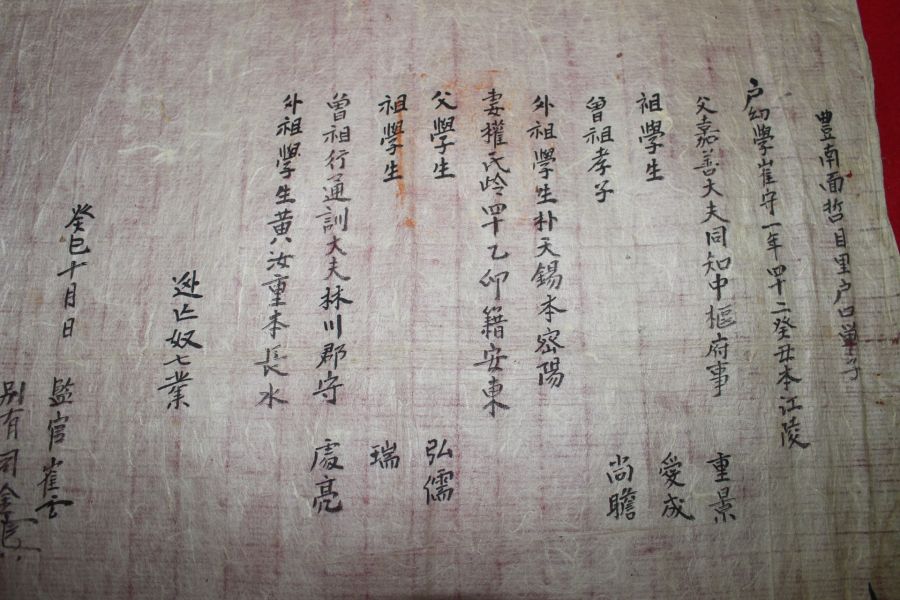 豊南面哲目里户口單子
户幼學崔守一年四十二癸丑本江陵
父嘉善大夫同知中樞府事 重景
祖學生 愛成
曾祖孝子 尚瞻
外祖學生朴天錫本密陽
妻權氏岭四十乙卯籍安東
父學生 弘儒
祖學生 瑞
曾祖行通訓大夫林川郡守 處亮
外祖學生黃汝重本長水
奴七業
癸巳十月日 監官崔
別有司金